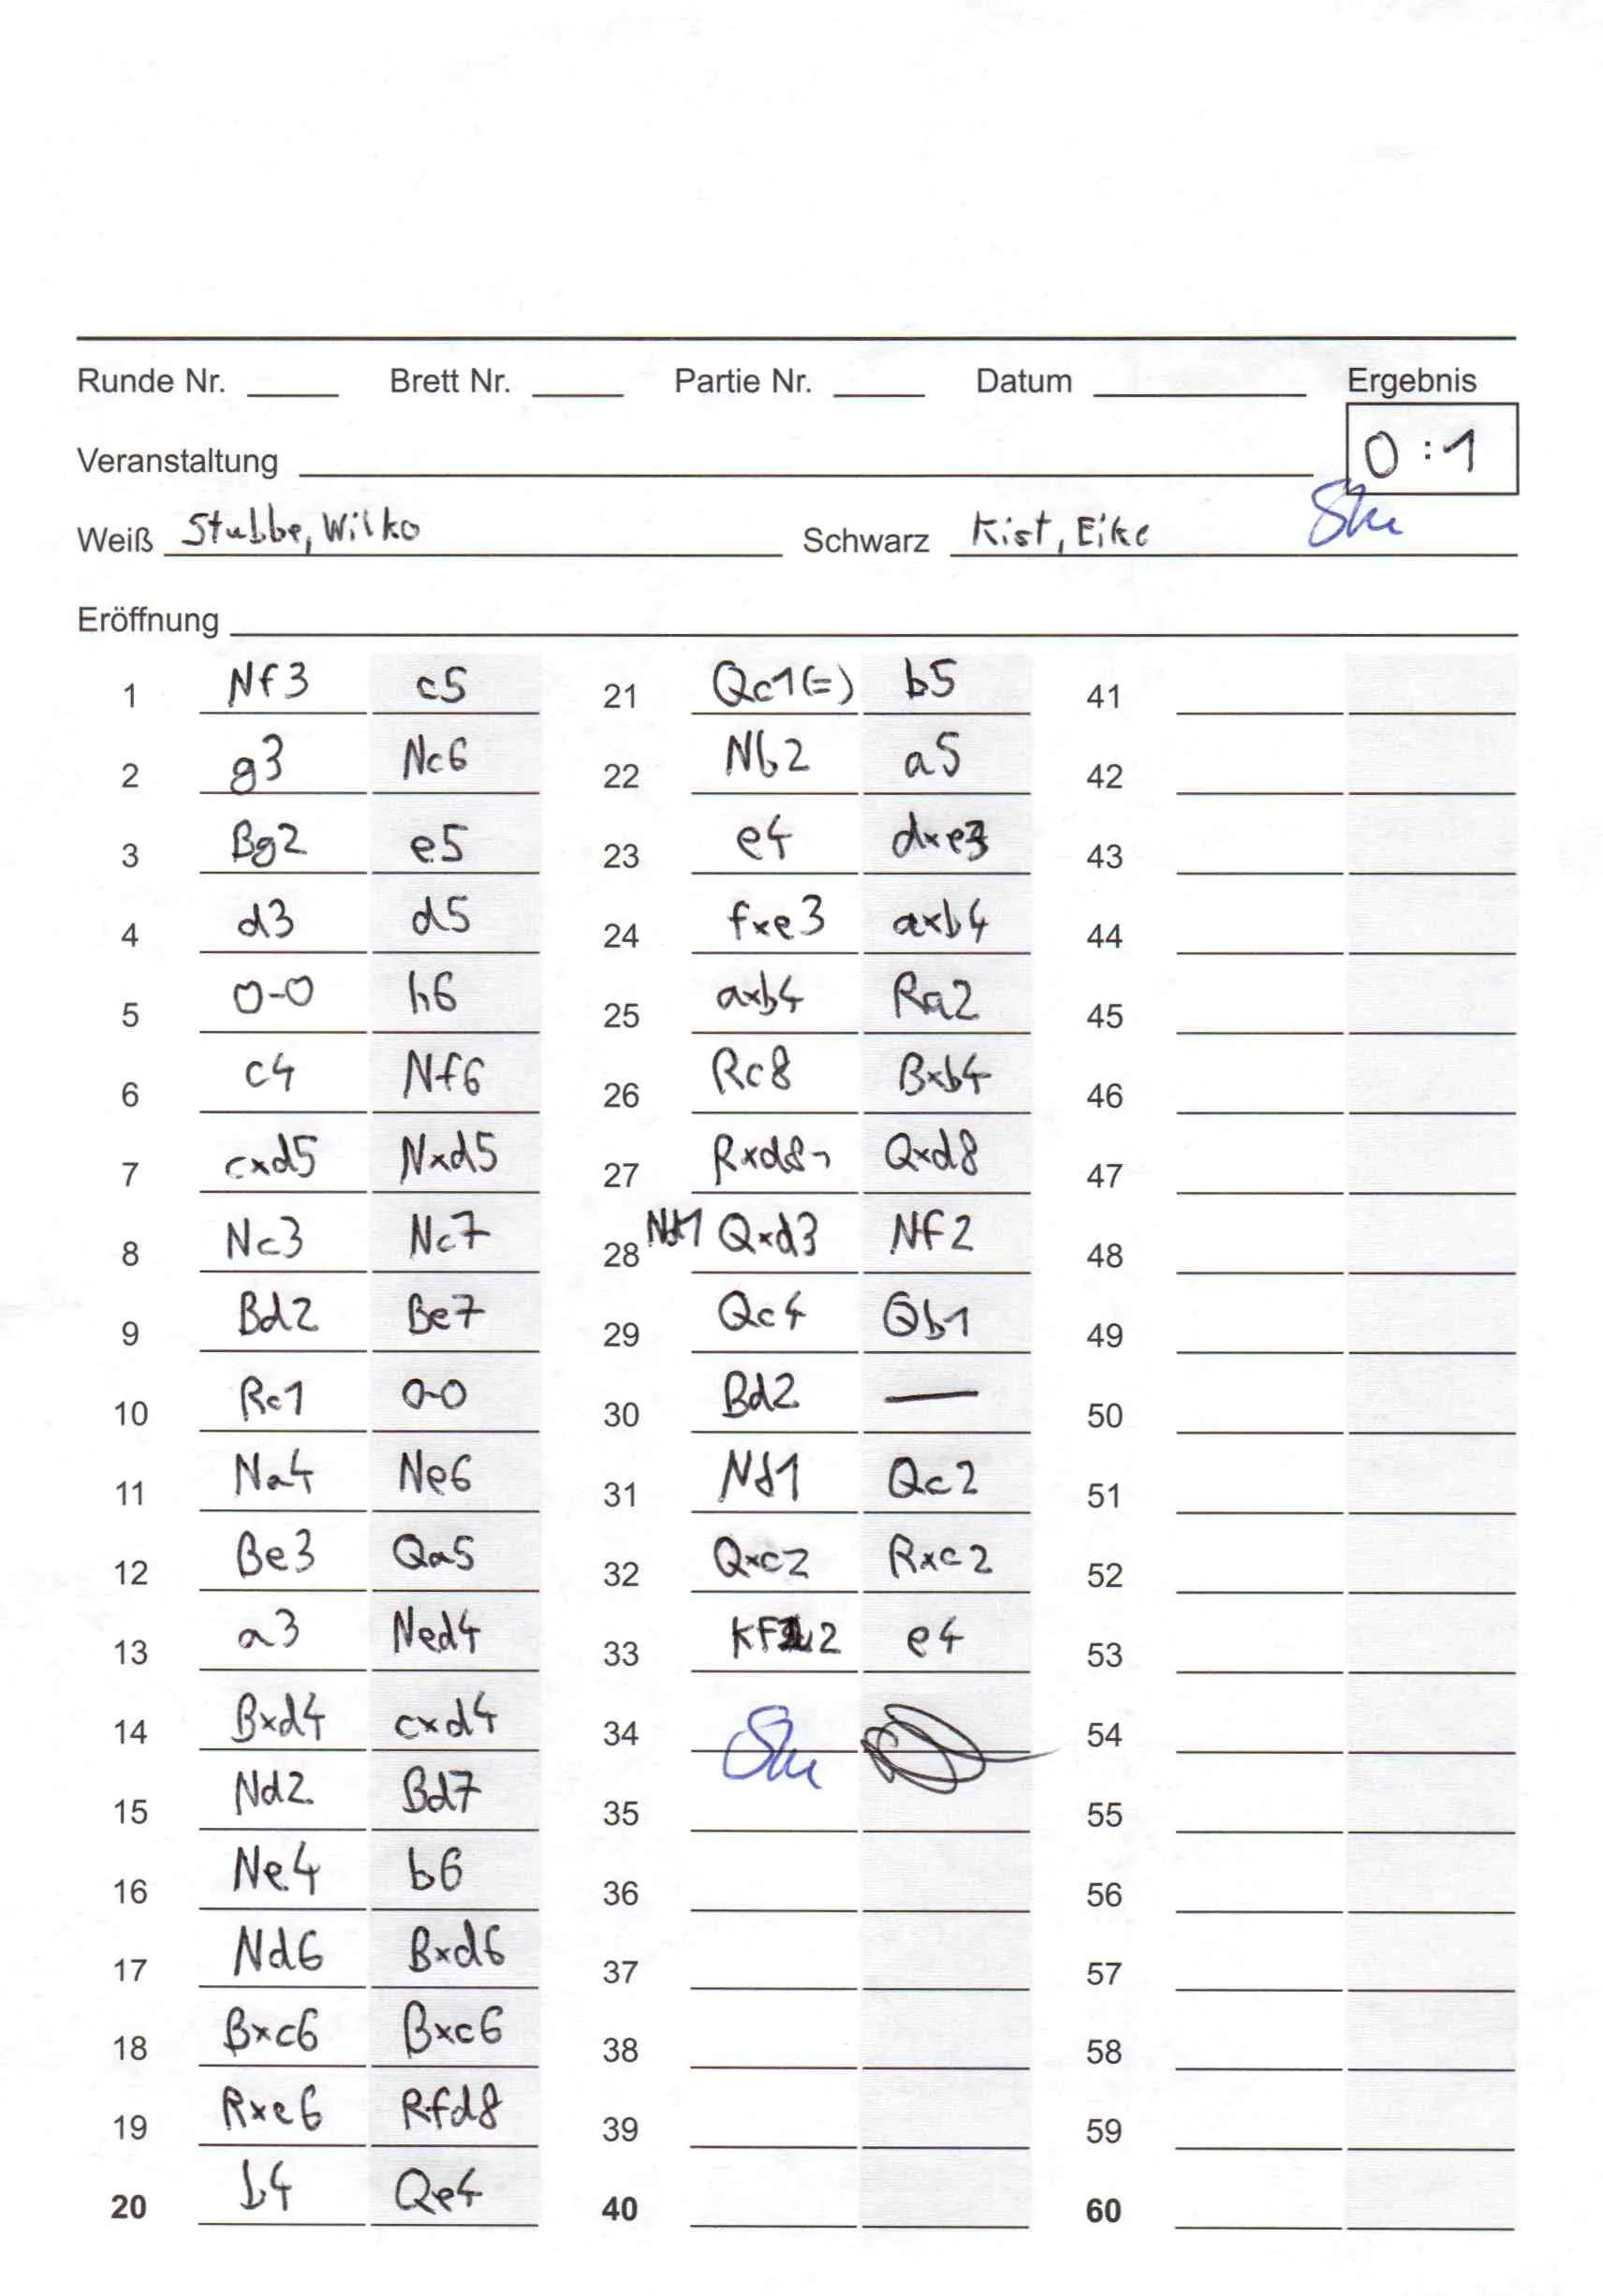 Runde Nr. Brett Nr. Partie Nr. Datum Ergebnis
0:1
Veranstaltung
Weiß Stubbe, Wilko Schwarz Kist, Eike
Eröffnung
1 Nf3 c5 21 Qc1(=) b5 41
2 g3 Nc6 22 Nb2 a5 42
3 Bg2 e5 23 e4 dxe3 43
4 d3 d5 24 fxe3 axb4 44
5 0-0 h6 25 axb4 Ra2 45
6 c4 Nf6 26 Rc8 Bxb4 46
7 cxd5 Nxd5 27 Rxd8 Qxd8 47
8 Nc3 Nc7 28 Nd1 Qxd3 Nf2 48
9 Bd2 Be7 29 Qc4 Qb1 49
10 Rc1 0-0 30 Bd2 — 50
11 Na4 Ne6 31 Nd1 Qc2 51
12 Be3 Qa5 32 Qxc2 Rxc2 52
13 a3 Ned4 33 Kf2 e4 53
14 Bxd4 cxd4 34 54
15 Nd2 Bd7 35 55
16 Ne4 b6 36 56
17 Nd6 Bxd6 37 57
18 Bxc6 Bxc6 38 58
19 Rxe6 Rfd8 39 59
20 b4 Qe4 40 60